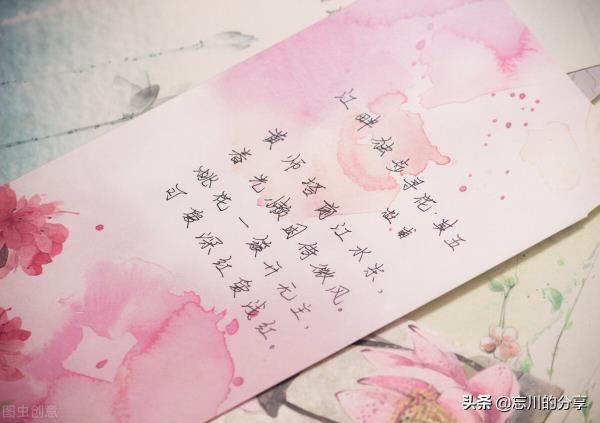 江畔独步寻花·其五
杜甫
黄师塔前江水东，
春光懒困倚微风。
桃花一簇开无主，
可爱深红爱浅红。
图虫创意
头条 @忘川的分享